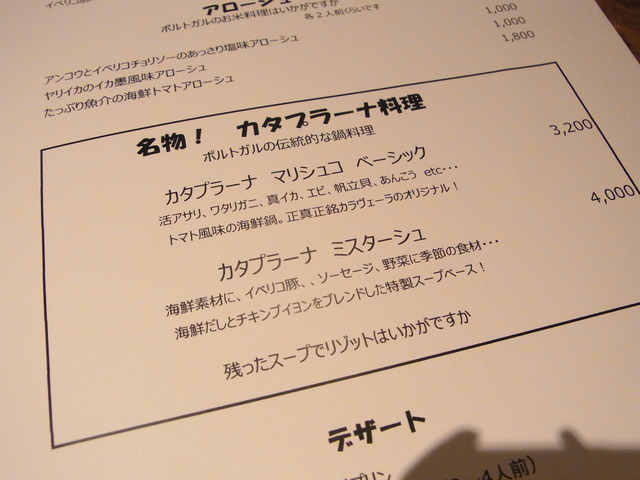 アローシュ
ポルトガルのお米料理はいかがですか
各2人前くらいです
アンコウとイベリコチョリソーのあっさり塩味アローシュ 1,000
ヤリイカのイカ墨風味アローシュ 1,000
たっぷり魚介の海鮮トマトアローシュ 1,800
名物! カタプラーナ料理
ポルトガルの伝統的な鍋料理
カタプラーナ マリシュコ ベーシック 3,200
活アサリ、ワタリガニ、真イカ、エビ、帆立貝、あんこう etc…
トマト風味の海鮮鍋。正真正銘カラヴェーラのオリジナル!
カタプラーナ ミスターシュ 4,000
海鮮素材に、イベリコ豚、、ソーセージ、野菜に季節の食材…
海鮮だしとチキンブイヨンをブレンドした特製スープベース!
残ったスープでリゾットはいかがですか
デザート
プリン
4人前)